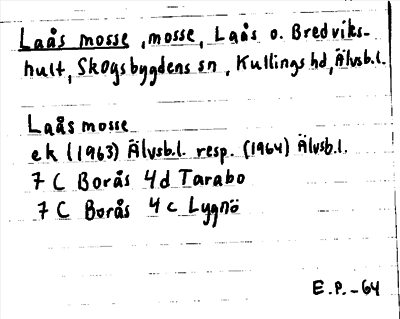 Laås mosse, mosse, Laås o. Bredviks-
hult, Skogsbygdens sn, Kullings hd, Älvsb.l.
Laås mosse
ek (1963) Älvsb.l. resp. (1964) Älvsb.l.
7 C Borås 4d Tarabo
7 C Borås 4c Lygnö
E.P.-64